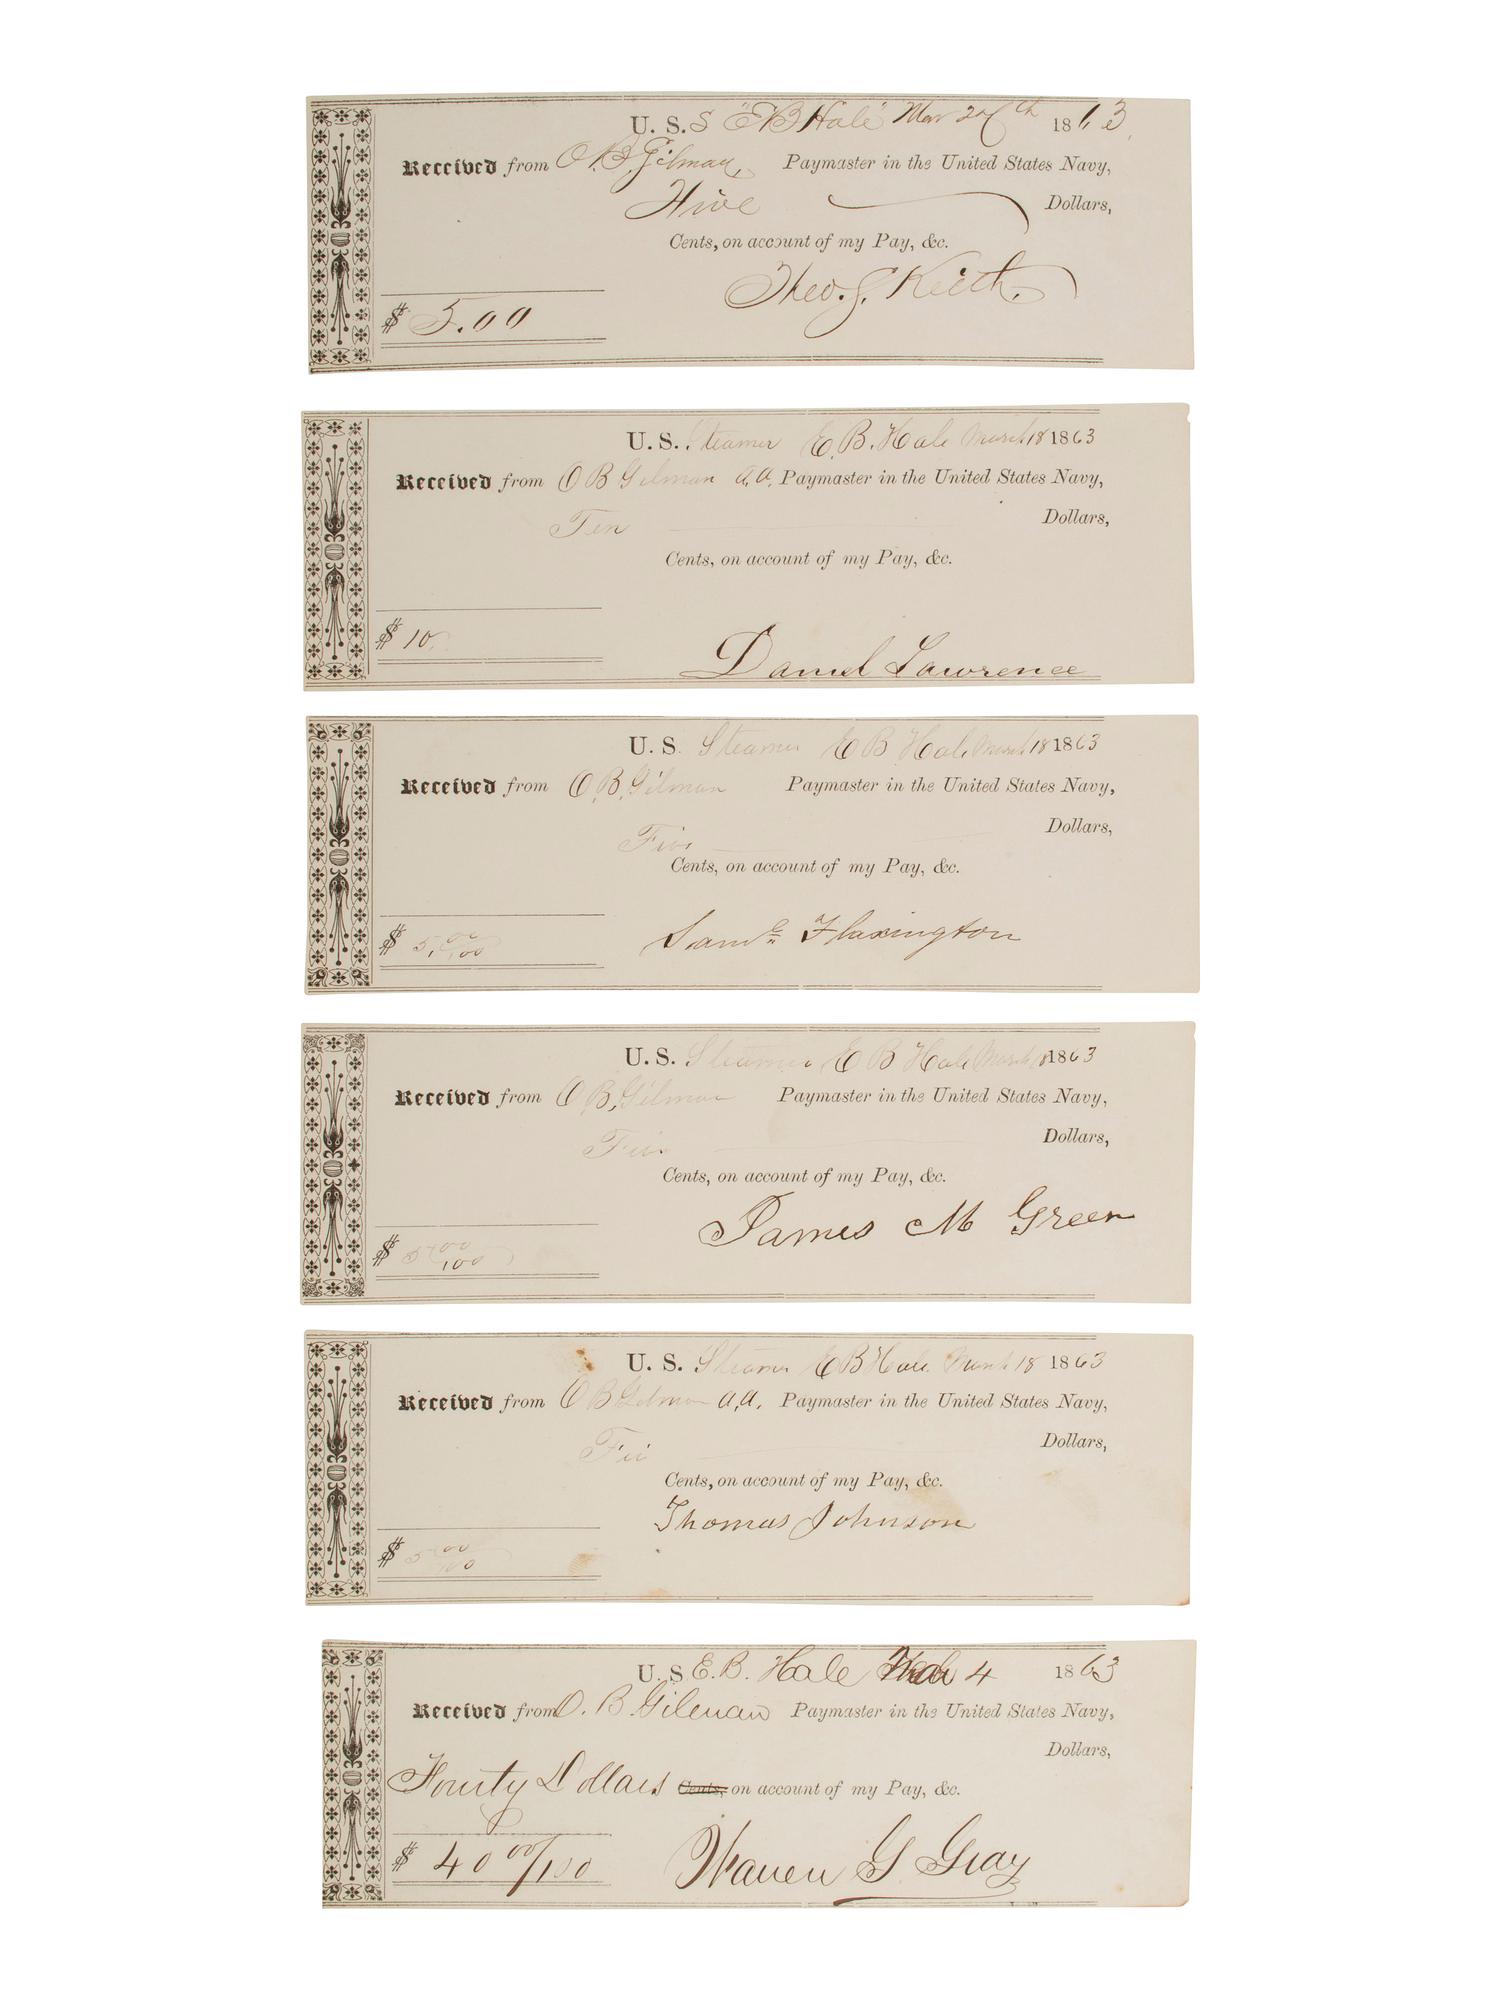 U. S. S "E B Hale" Mar 20th 1863
Received from O. B. Gilman, Paymaster in the United States Navy,
Five Dollars,
Cents, on account of my Pay, &c.
$ 5.00
Theo. G. Keith.
U. S. Steamer E. B. Hale March 18 1863
Received from O B Gilman a, a, Paymaster in the United States Navy,
Ten Dollars,
Cents, on account of my Pay, &c.
$ 10
Daniel Lawrence
U. S. Steamer E B Hale March 18 1863
Received from O. B. Gilman Paymaster in the United States Navy,
Five Dollars,
Cents, on account of my Pay, &c.
$ 5, 00/100
Saml Flaxington
U. S. Steamer E B Hale March 18 1863
Received from O. B, Gilman Paymaster in the United States Navy,
Five Dollars,
Cents, on account of my Pay, &c.
$ 5 00/100
James M Green
U. S. Steamer E B Hale March 18 1863
Received from O B Gilman a, a, Paymaster in the United States Navy,
Five Dollars,
Cents, on account of my Pay, &c.
$ 5 00/100
Thomas Johnson
U. S E. B. Hale Mar 4 1863
Received from O. B Gilman Paymaster in the United States Navy,
Dollars,
Fourty Dollars Cents, on account of my Pay, &c.
$ 40 00/100
Warren G Gray